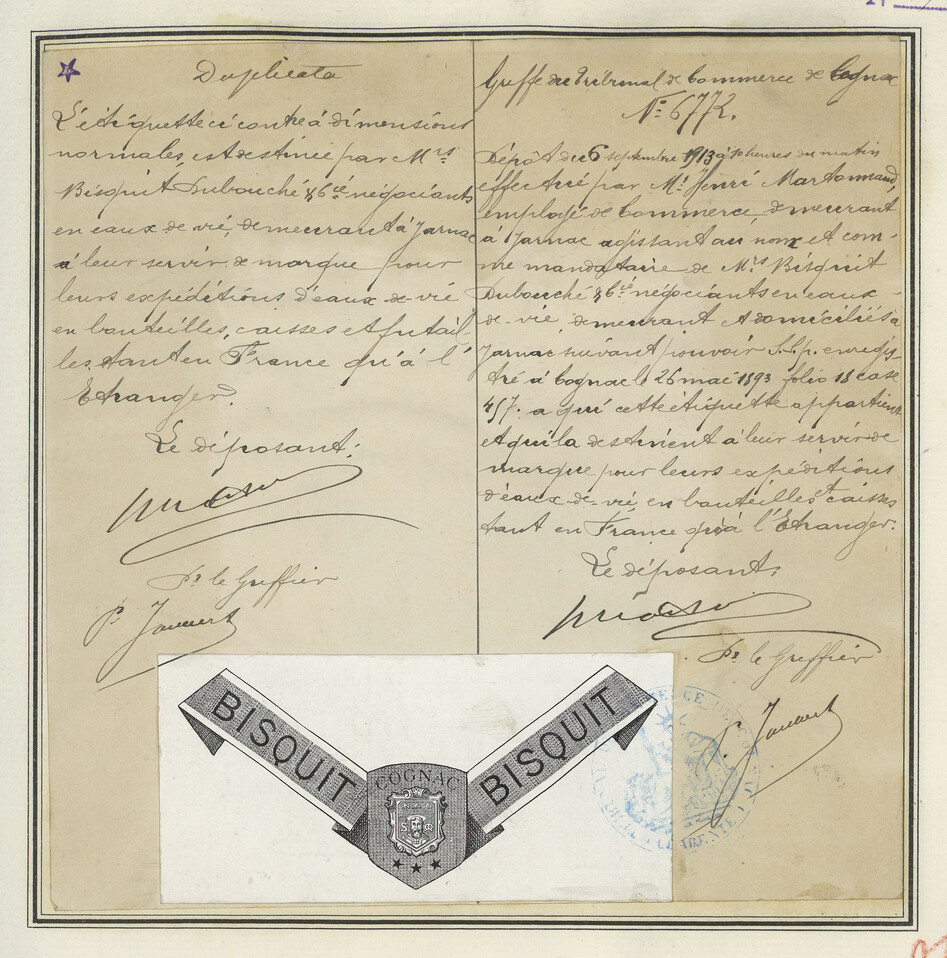 Duplicata
L'étiquette ci contre à dimensions
normales, est destinée par Mrs
Bisquit Dubouché & Cie négociants
en eaux de vie, demeurant à Jarnac
à leur servir de marque pour
leurs expéditions d'eaux-de-vie
en bouteilles, caisses et futail-
les, tant en France qu'à l'
Etranger.
Le déposant:
Pr le Greffier
Greffe du Tribunal de Commerce de Cognac
No 6772.
Dépôt du 6 septembre 1913 à 10 heures du matin
effectué par Mr Henri
employé de Commerce, demeurant
à Jarnac agissant au nom et com-
me mandataire de Mrs Bisquit
Dubouché & Cie négociants en eaux-
de-vie, demeurant et domiciliés à
Jarnac suivant pouvoir S.S.p. enregis-
tré à Cognac le 26 mai 1893 folio 18 case
457. a qui cette étiquette appartient
et qui la destinent à leur servir de
marque pour leurs expéditions
d'eaux-de-vie, en bouteilles et caisses
tant en France qu'à l'Etranger.
Le déposant:
Pr le Greffier
BISQUIT
COGNAC
BISQUIT